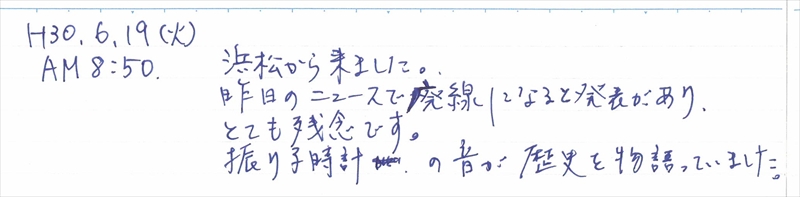 H30.6.19(火)
AM 8:50.
浜松から来ました。
昨日のニュースで廃線になると発表があり、
とても残念です。
振り子時計 の音が歴史を物語っていました。